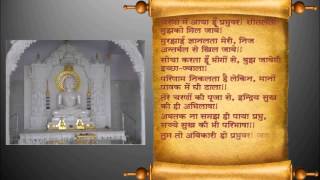 चरणों में आया हूँ प्रभुवर! शीतलता
मुझको मिल जावे।
मुरझाई ज्ञानलता मेरी, निज
अन्तर्बल से खिल जावे।।
सोचा करता हूँ भोगों से, बुझ जावेगी
इच्छा-ज्वाला।
परिणाम निकलता है लेकिन, मानों
पावक में घी डाला।।
तेरे चरणों की पूजा से, इन्द्रिय सुख
की ही अभिलाषा।
अबतक ना समझ ही पाया प्रभु,
सच्चे सुख की भी परिभाषा।।
तुम तो अविकारी हो प्रभुवर! जग